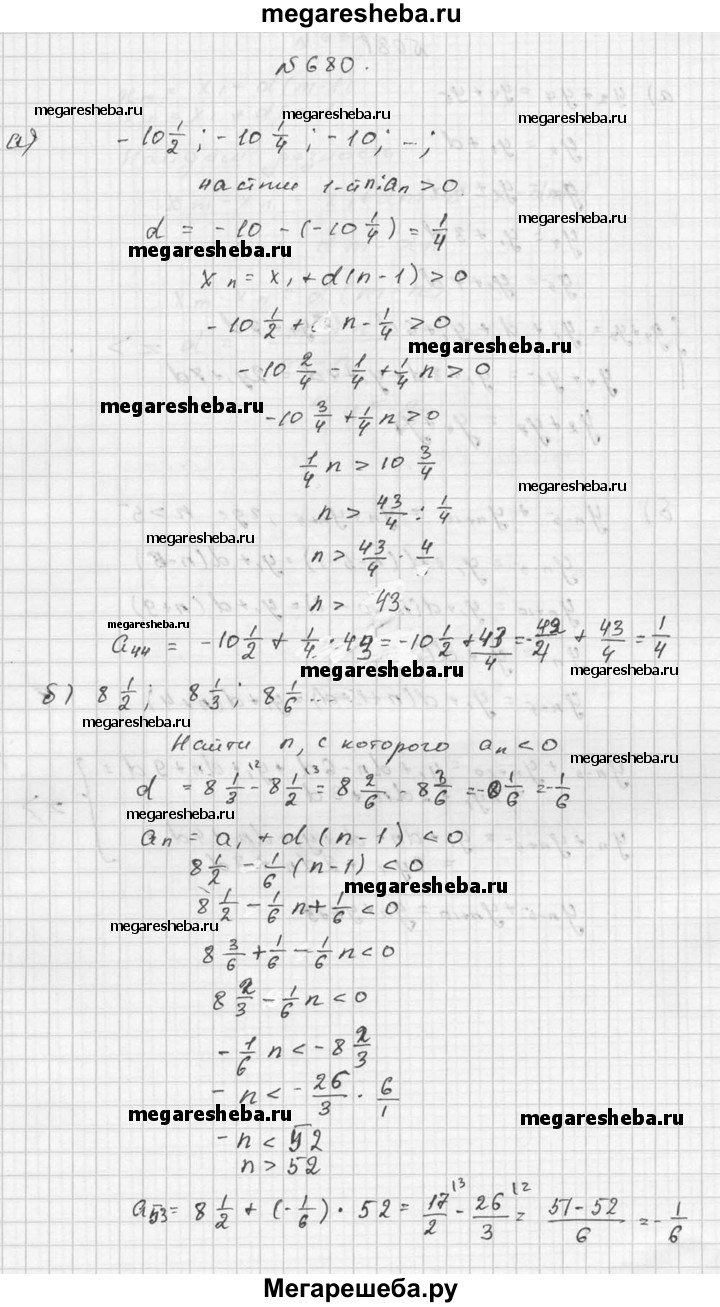 megaresheba.ru
№680.
megaresheba.ru
megaresheba.ru
а) -10 1/2 ; -10 1/4 ; -10; ...;
megaresheba.ru
1-й n: aₙ > 0.
megaresheba.ru
d = -10 - (-10 1/4) = 1/4
megaresheba.ru
xₙ = x₁ + d(n-1) > 0
-10 1/2 + n - 1/4 > 0
megaresheba.ru
-10 2/4 - 1/4 + 1/4 n > 0
megaresheba.ru
-10 3/4 + 1/4 n > 0
1/4 n > 10 3/4
megaresheba.ru
n > 43/4 : 1/4
megaresheba.ru
n > 43/4 · 4/1
n > 43.
megaresheba.ru
a₄₄ = -10 1/2 + 1/4 · 43 = -10 1/2 + 43/4 = + 43/4 = 1/4
megaresheba.ru
б) 8 1/2 ; 8 1/3 ; 8 1/6 ...
megaresheba.ru
Найти n, с которого aₙ < 0
megaresheba.ru
d = 8 1/3 - 8 1/2 = 8 2/6 - 8 3/6 = -0 1/6 = -1/6
megaresheba.ru
aₙ = a₁ + d(n-1) < 0
8 1/2 - 1/6 (n-1) < 0
megaresheba.ru
8 1/2 - 1/6 n + 1/6 < 0
megaresheba.ru
8 3/6 + 1/6 - 1/6 n < 0
megaresheba.ru
8 2/3 - 1/6 n < 0
-1/6 n < -8 2/3
megaresheba.ru
-n < -26/3 · 6/1
megaresheba.ru
megaresheba.ru
-n < 52
n > 52
a₅₃ = 8 1/2 + (-1/6) · 52 = 17/2 - 26/3 = 51-52/6 = -1/6
Мегарешеба.ру